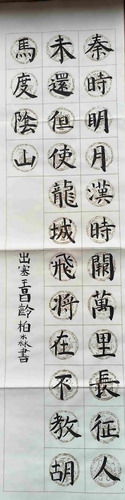 秦時明月漢時關萬里長征人
未還但使龍城飛將在不教胡
馬度陰山
出塞王昌齡柏森書